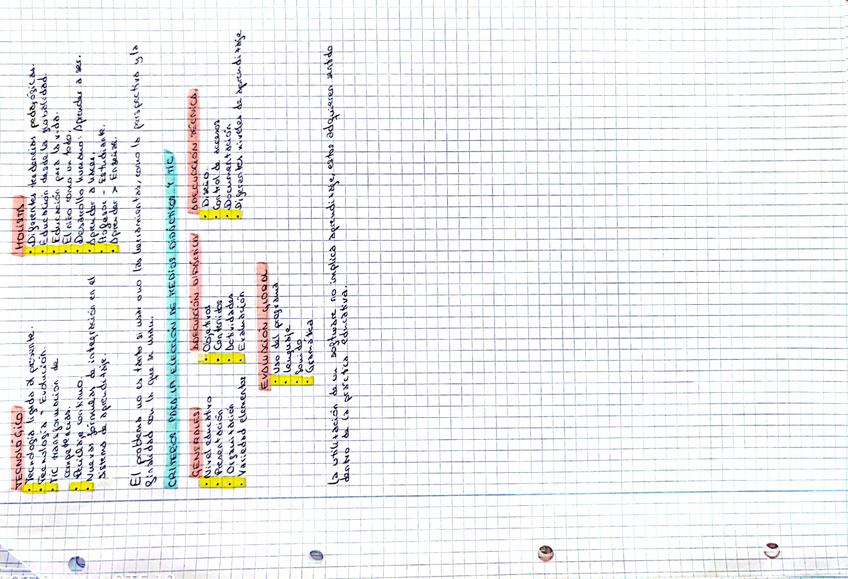 TECNOLÓGICO
• Tecnología ligada al presente.
• Tecnología = Evolución.
• TIC transformación de
competencias.
• Reciclaje continuo.
• Nuevas fórmulas de integración en el
sistema de aprendizaje.
HOLISTA
• Diferentes tendencias pedagógicas.
• Educación desde la globalidad.
• Educación para la vida.
• El niño como un todo.
• Desarrollo humano: Aprender a ser.
• Aprender a hacer.
• Profesor - Estudiante.
• Aprender > Enseñar.
El problema no es tanto si usar o no las herramientas, como la perspectiva y la
finalidad con la que se usan.
CRITERIOS PARA LA ELECCIÓN DE MEDIOS DIDÁCTICOS Y TIC
GENERALES
• Nivel educativo
• Presentación
• Organización
• Variedad elementos
ADECUACIÓN DIDÁCTICA
• Objetivos
• Contenidos
• Actividades
• Evaluación
ADECUACIÓN TÉCNICA
• Diseño
• Control de accesos
• Documentación
• Diferentes niveles de aprendizaje
EVALUACIÓN GLOBAL
• Uso del programa
• Lenguaje
• Sonido
• Gramática
La utilización de un software no implica aprendizaje, estos adquieren sentido
dentro de la práctica educativa.